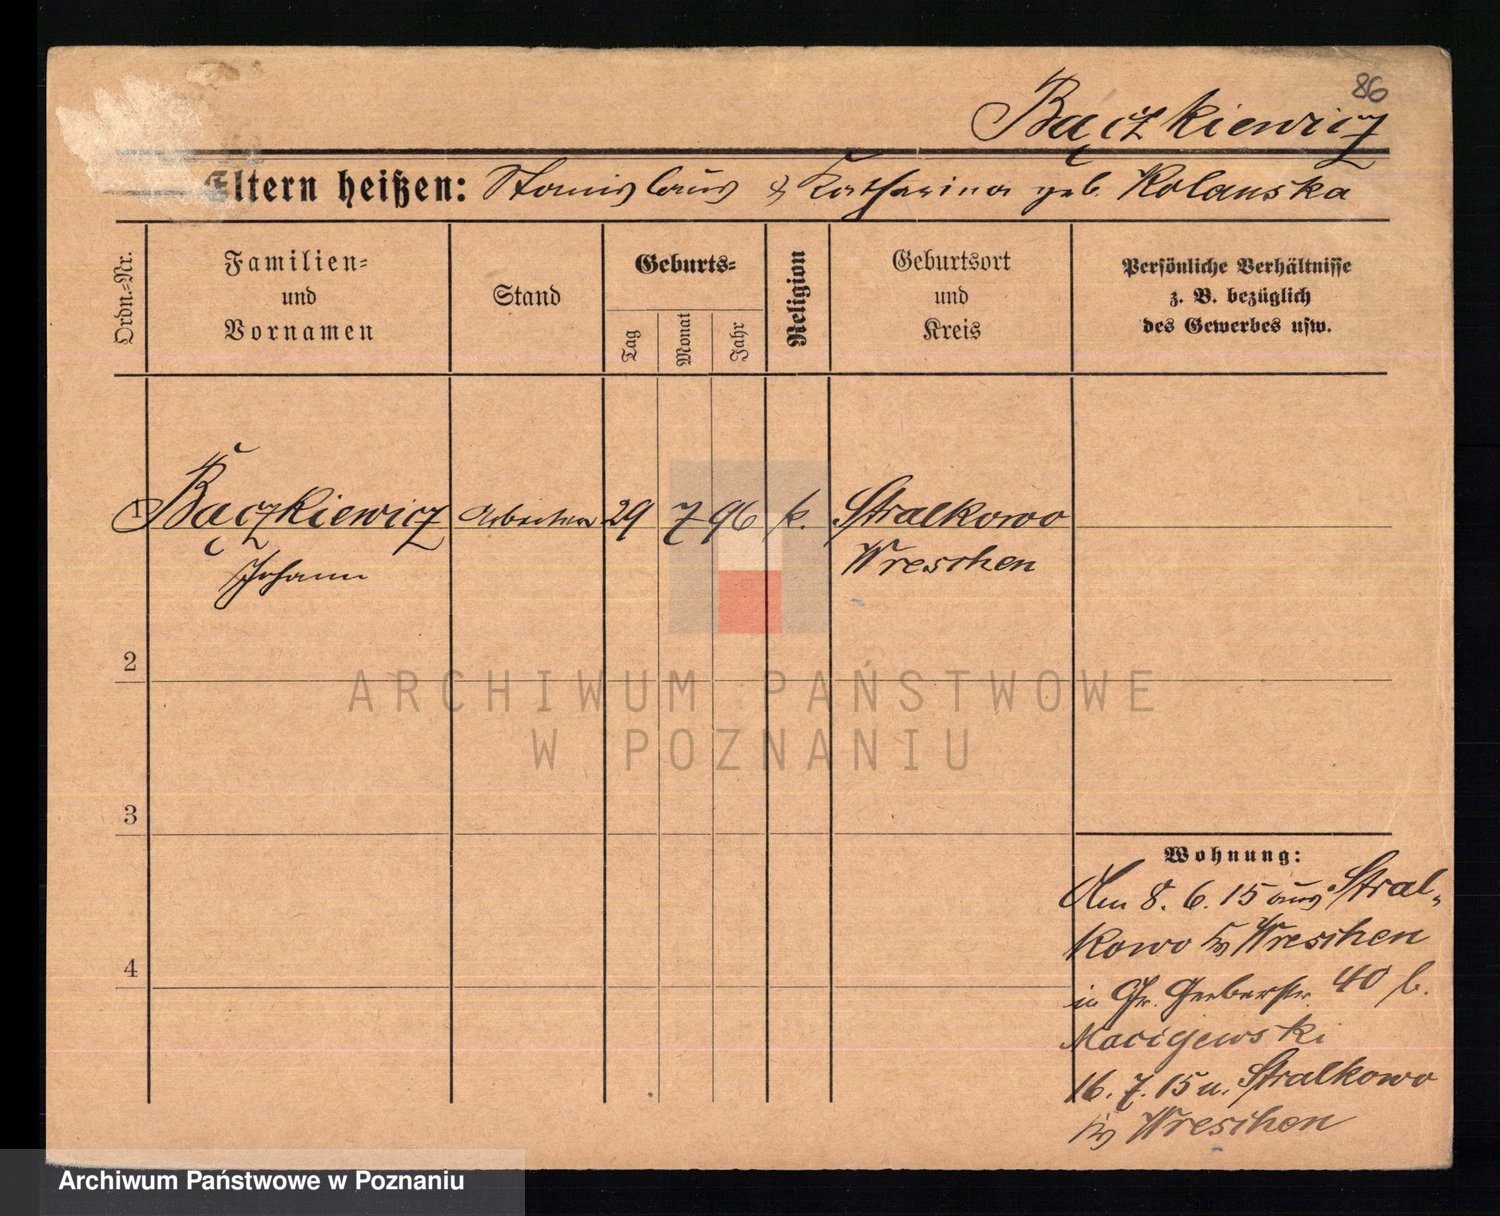 86
Bączkiewicz
Eltern heißen: Stanislaus & Katharina geb. Kolanska
Ordn.-Nr.
Familien- und Vornamen
Stand
Geburts-
Tag
Monat
Jahr
Religion
Geburtsort und Kreis
Persönliche Verhältnisse
z. B. bezüglich
des Gewerbes usw.
1 Bączkiewicz Arbeiter 29 7 96 k. Stralkowo
Johann Wreschen
2
ARCHIWUM PAŃSTWOWE
W POZNANIU
3
Wohnung:
Am 8. 6. 15 aus Stral-
kowo Kr Wreschen
4
in Gr. Gerberstr. 40 b.
Macigewski
16. 7. 15 n. Stralkowo
Kr Wreschen
Archiwum Państwowe w Poznaniu